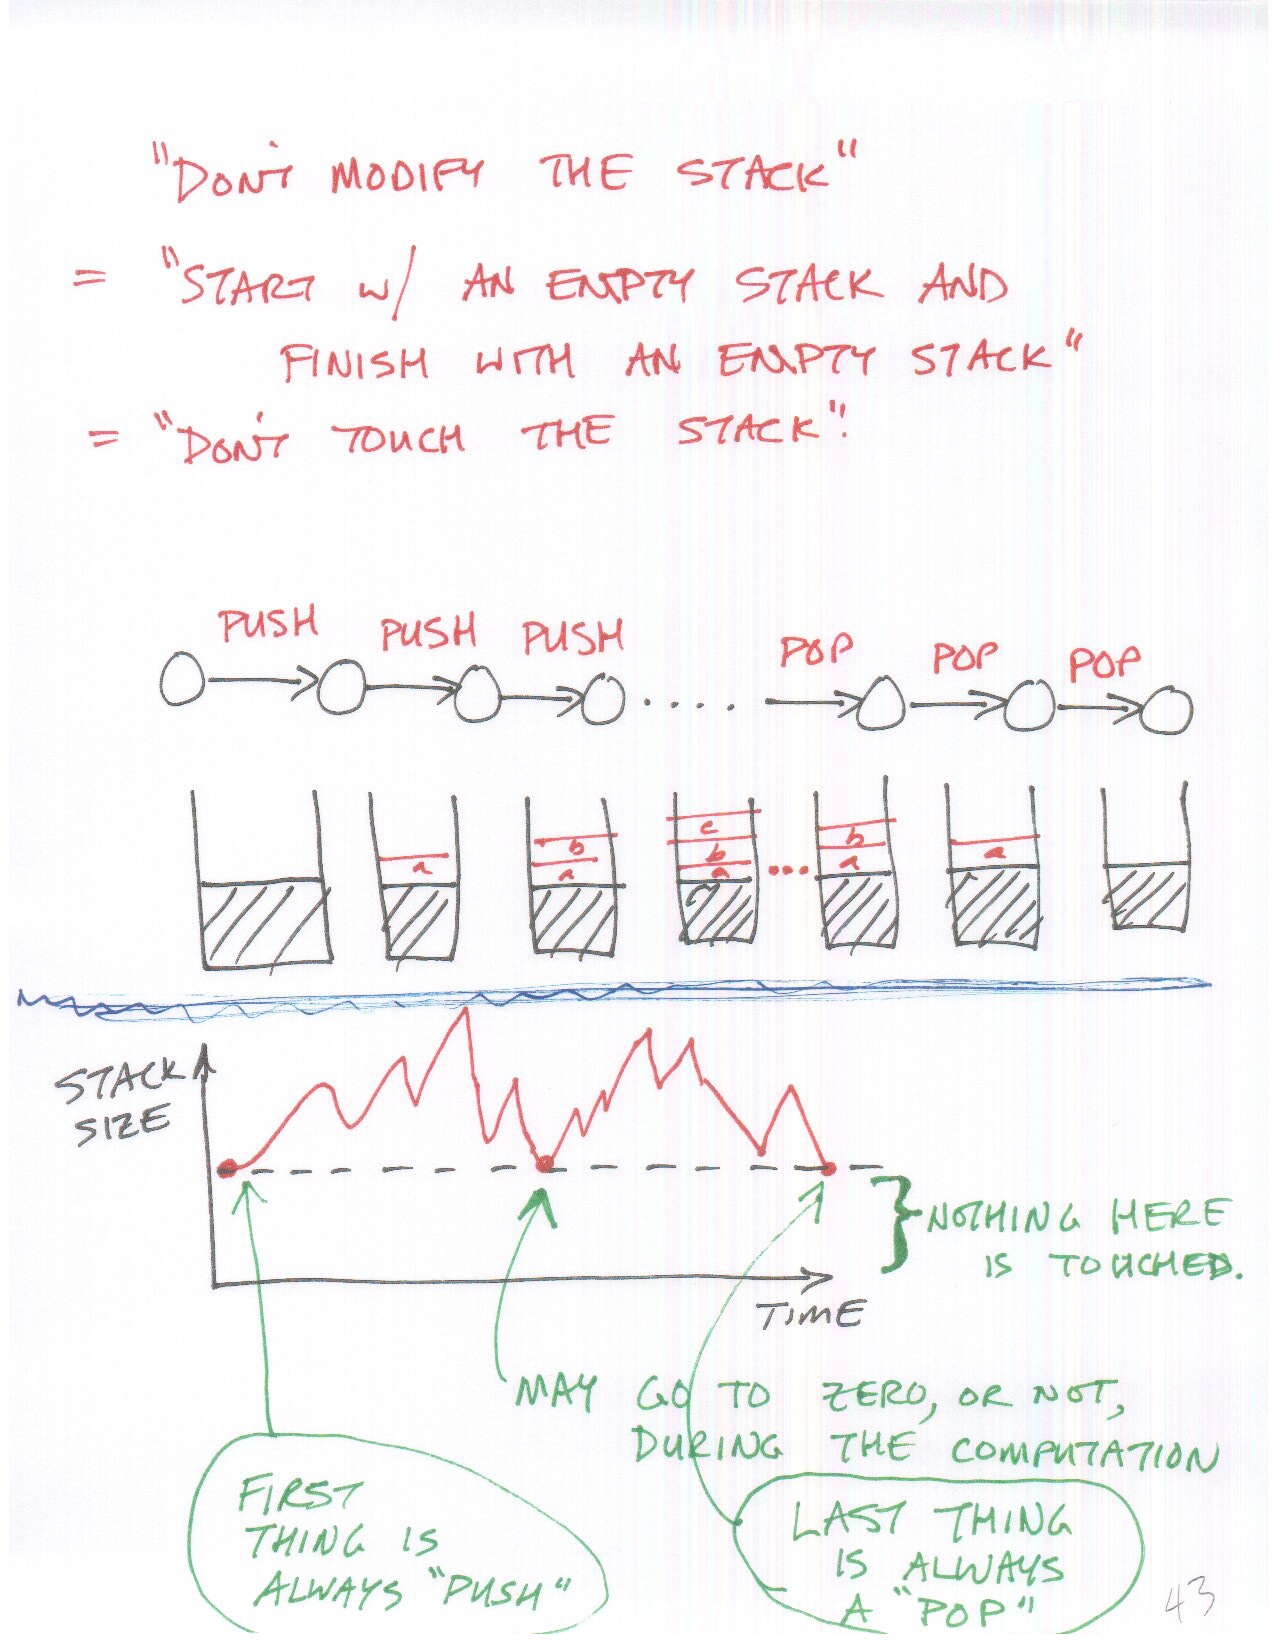 "DON'T MODIFY THE STACK"
= "START w/ AN EMPTY STACK AND
FINISH WITH AN EMPTY STACK"
= "DON'T TOUCH THE STACK".
PUSH PUSH PUSH .... POP POP POP
c
b b b
a a a ... a a
STACK
SIZE
NOTHING HERE
IS TOUCHED.
TIME
MAY GO TO ZERO, OR NOT,
DURING THE COMPUTATION
FIRST
THING IS
ALWAYS "PUSH"
LAST THING
IS ALWAYS
A "POP"
43